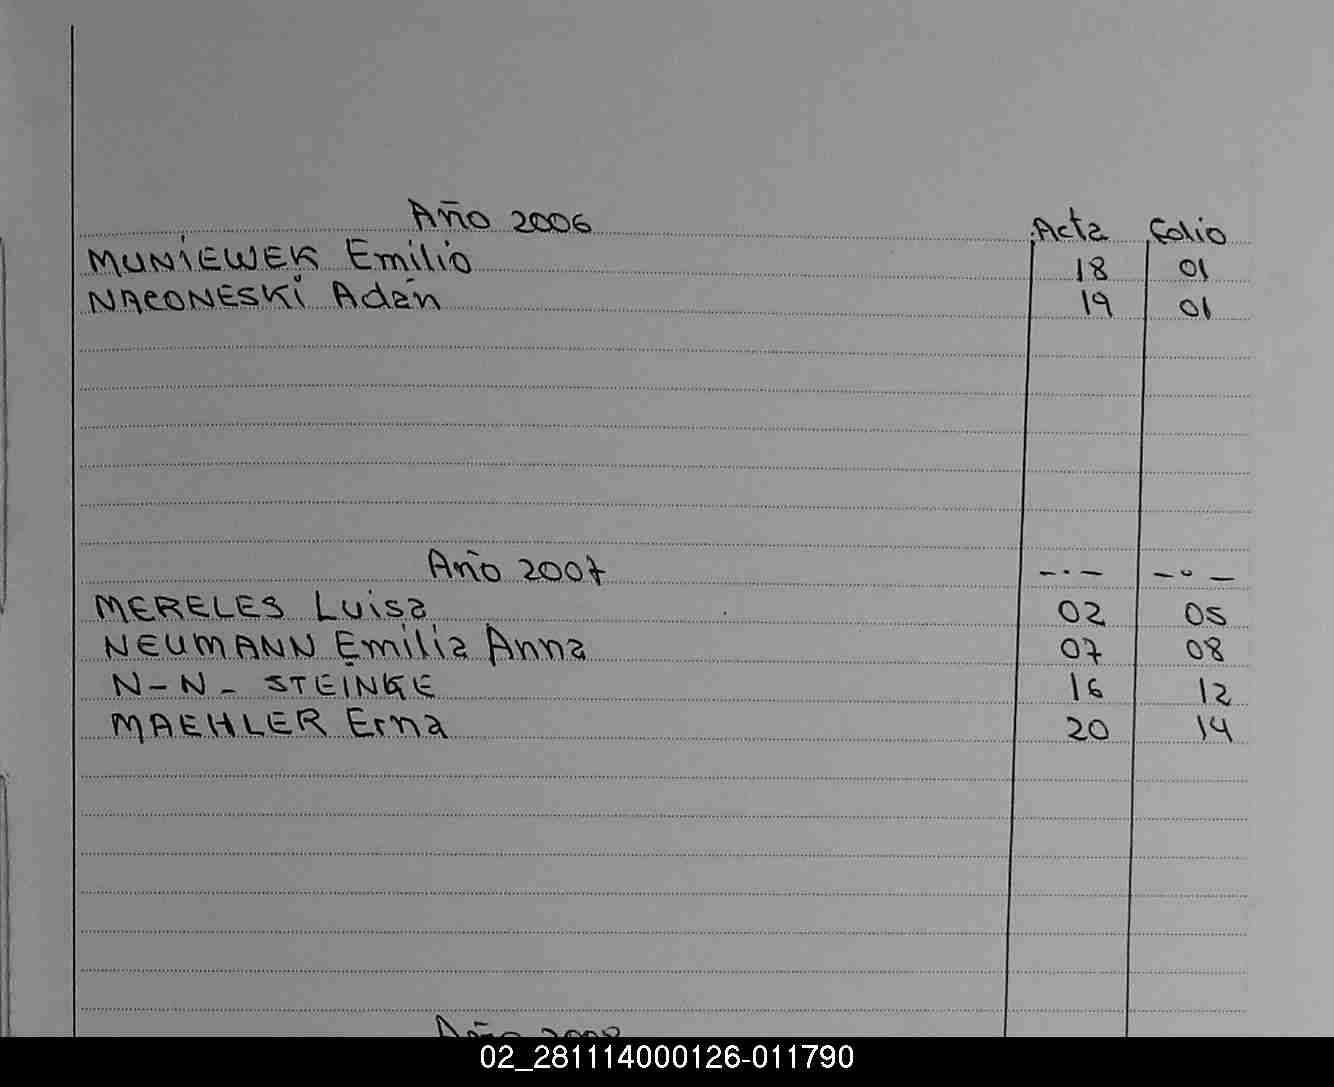 Año 2006 Acta Folio
MUNIEWEK Emilio 18 01
NACONESKI Adán 19 01
Año 2007 -.- -.-
MERELES Luisa 02 05
NEUMANN Emilia Anna 07 08
N-N- STEINKE 16 12
MAEHLER Erna 20 14
Año 2008
02_281114000126-011790